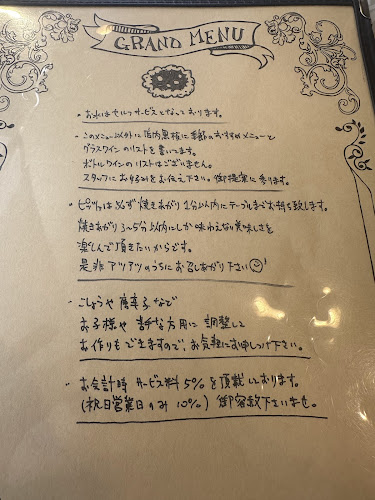 GRAND MENU
・お水はセルフサービスとなっております。
・このメニュー以外に店内黒板に季節のおすすめメニューと
グラスワインのリストを書いてます。
ボトルワインのリストはございません。
スタッフにお好みをお伝え下さい。御提案に参ります。
・ピッツァは必ず焼きあがり1分以内にテーブルまでお持ち致します。
焼きあがり3〜5分以内にしか味わえない美味しさを
楽しんで頂きたいからです。
是非アツアツのうちにお召しあがり下さい☺!
・こしょうや唐辛子など
お子様や苦手な方用に調整して
お作りもできますので、お気軽にお申しつけ下さい。
・お会計時 サービス料5%を頂戴しております。
(祝日営業日のみ10%) 御容赦下さいませ。